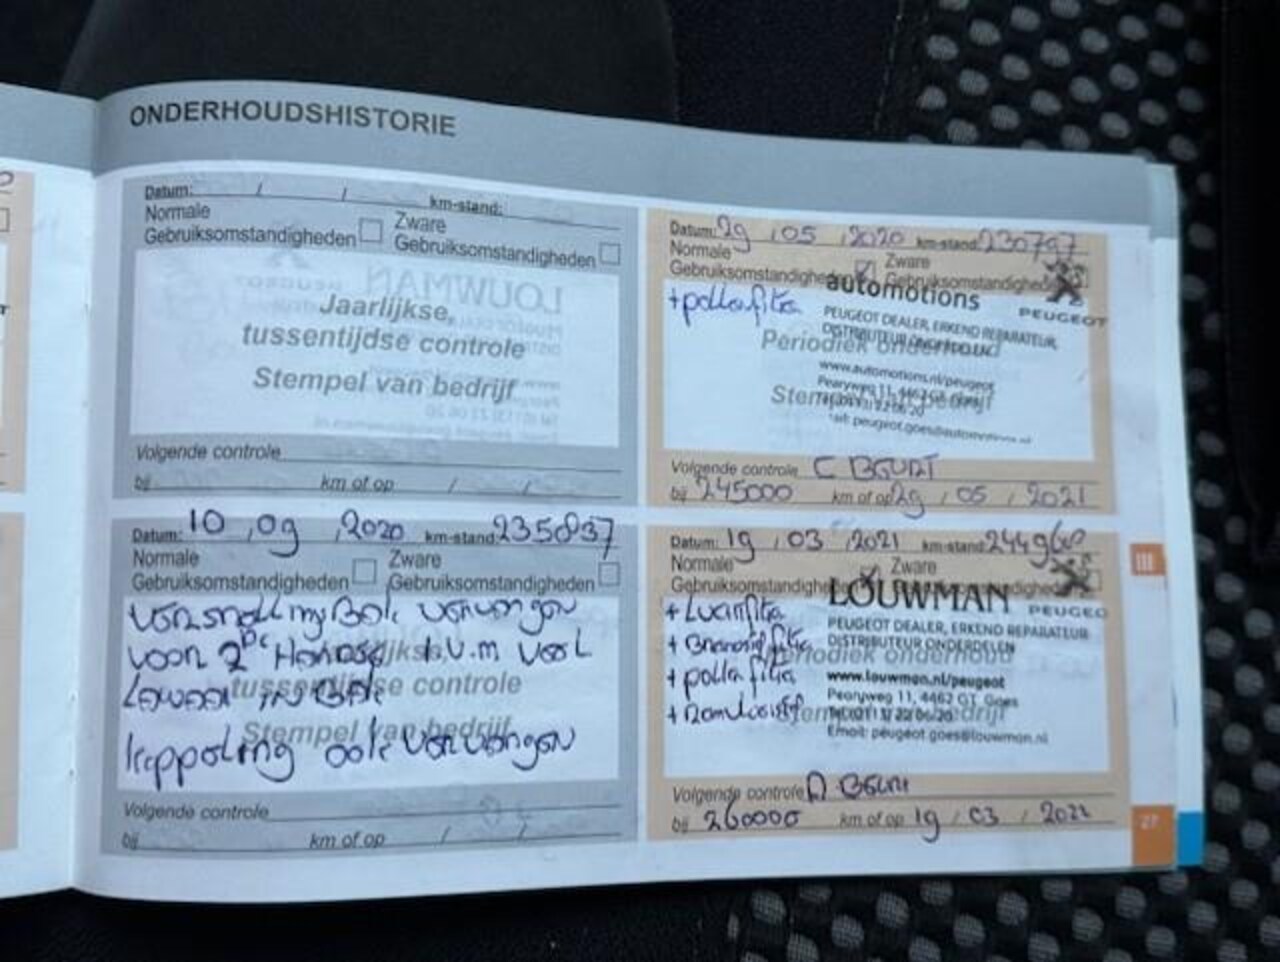 ONDERHOUDSHISTORIE
Datum: / / km-stand:
Normale
Gebruiksomstandigheden
Zware
Gebruiksomstandigheden
Jaarlijkse,
tussentijdse controle
Stempel van bedrijf
Volgende controle
bij km of op / /
Datum: 29 / 05 / 2020 km-stand: 230797
Normale
Gebruiksomstandigheden
Zware
Gebruiksomstandigheden
automotions
PEUGEOT
+ pollenfilter
PEUGEOT DEALER, ERKEND REPARATEUR,
DISTRIBUTEUR ONDERDELEN
Periodiek onderhoud
www.automotions.nl/peugeot
Pearyweg 11, 4462 GT Goes
Stempel van bedrijf
Email: peugeot.goes@automotions.nl
Volgende controle C BEURT
bij 245000 km of op 29 / 05 / 2021
Datum: 10 / 09 / 2020 km-stand: 235837
Normale
Gebruiksomstandigheden
Zware
Gebruiksomstandigheden
Versnellingsbak vervangen
voor 2de Hands i.v.m veel
Lawaai in Bak
Jaarlijkse,
tussentijdse controle
Stempel van bedrijf
koppeling ook vervangen
Volgende controle
bij km of op / /
Datum: 19 / 03 / 2021 km-stand:
Normale
Gebruiksomstandigheden
Zware
Gebruiksomstandigheden
LOUWMAN
PEUGEOT
+ Luchtfilter
+ Brandstoffilter
+ pollenfilter
+ Remvloeistof
PEUGEOT DEALER, ERKEND REPARATEUR
DISTRIBUTEUR ONDERDELEN
Periodiek onderhoud
www.louwman.nl/peugeot
Pearyweg 11, 4462 GT Goes
Stempel van bedrijf
Email: peugeot.goes@louwman.nl
Volgende controle A BEURT
bij 260000 km of op 19 / 03 / 2022
III
27